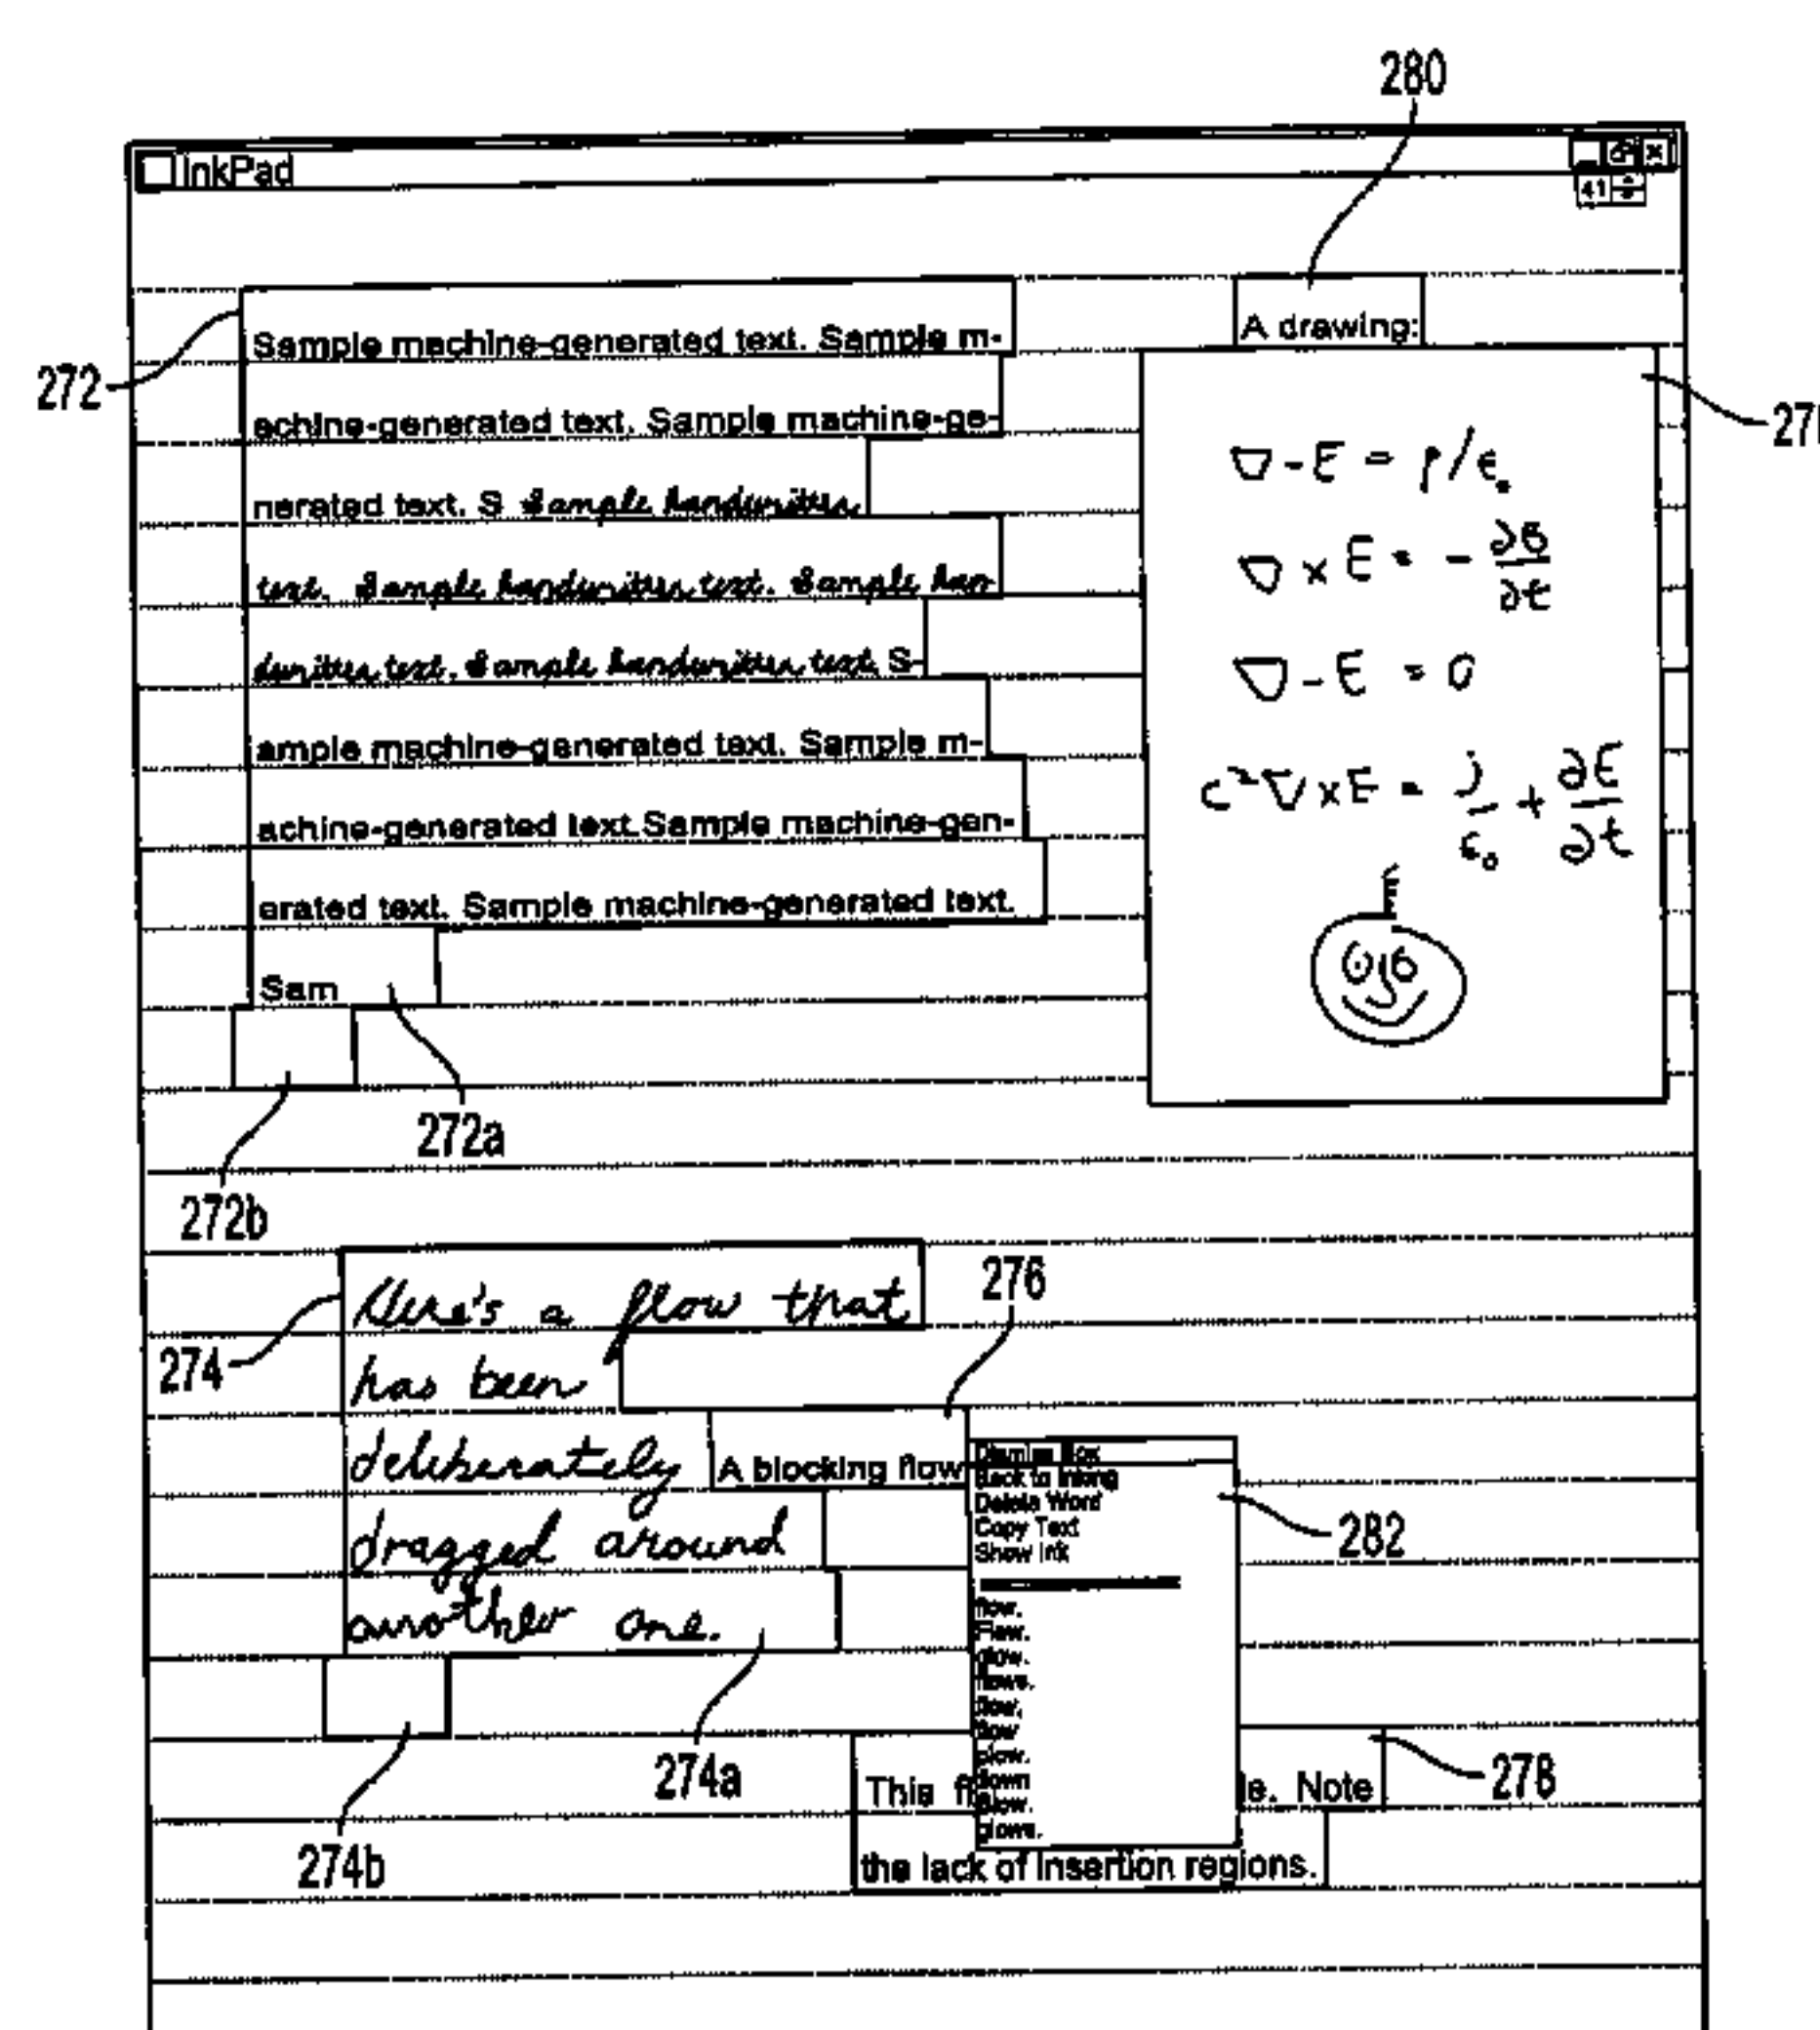 280
InkPad
41
A drawing:
272
Sample machine-generated text. Sample m-
achine-generated text. Sample machine-ge-
nerated text. S Sample handwritten
text. Sample handwritten text. Sample han-
dwritten text. Sample handwritten text S-
ample machine-generated text. Sample m-
achine-generated text.Sample machine-gen-
erated text. Sample machine-generated text.
Sam
∇-E = ρ/ε₀
∇ x E = - ∂B/∂t
∇-E = 0
c²∇xE = j/ε₀ + ∂E/∂t
272a
272b
276
274
Here's a flow that
has been
deliberately
dragged around
another one.
A blocking flow
Dismiss Box
Back to Inking
Delete Word
Copy Text
Show Ink
flow.
Flow.
glow.
flows.
flow.
flow
plow.
flown
glows.
282
274a
274b
278
This fl le. Note
the lack of insertion regions.